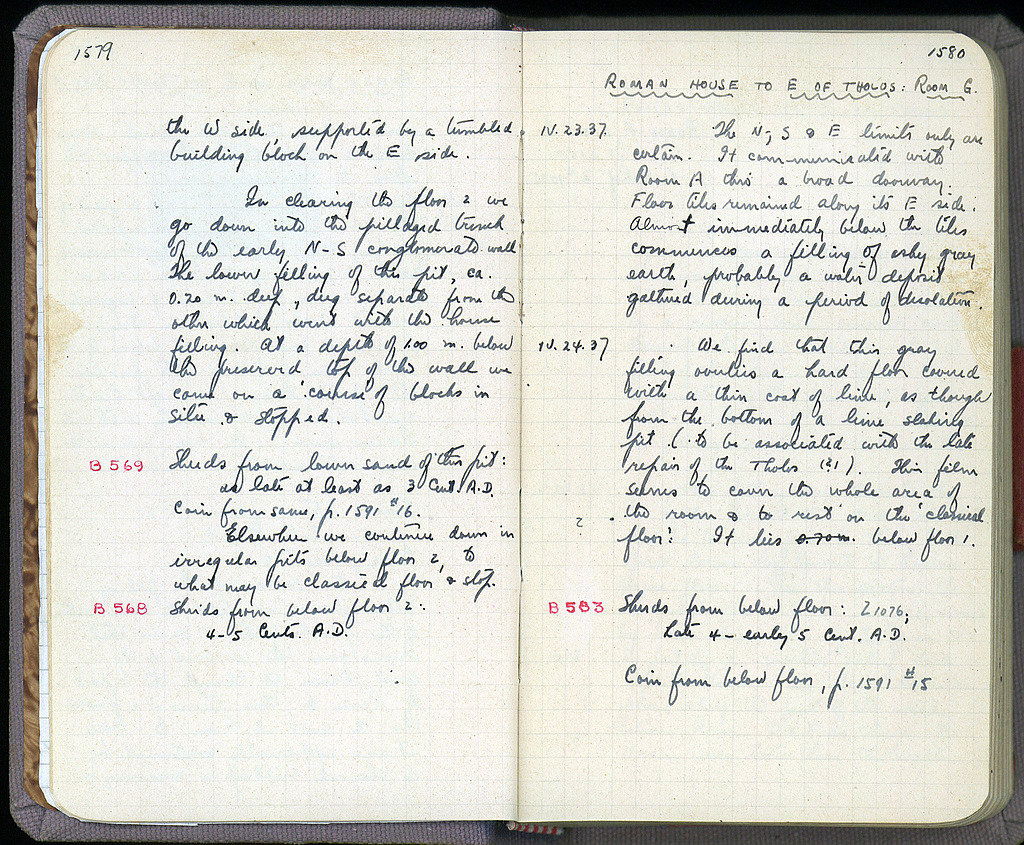 1579
the W side, supported by a tumbled
building block on the E side.
In clearing the floor 2 we
go down into the pillaged trench
of the early N-S conglomerate wall
The lower filling of this pit, ca.
0.20 m. deep, dug separate from the
other which went with the house
filling. At a depth of 1.00 m. below
the preserved top of the wall we
come on a course of blocks in
situ & stopped.
B 569 Sherds from lower sand of this pit:
as late at least as 3 Cent. A.D.
Coin from same, p. 1591 #16.
Elsewhere we continue down in
irregular pits below floor 2, to
what may be classical floor & stop.
B 568 Sherds from below floor 2:
4-5 Cents. A.D.
1580
ROMAN HOUSE TO E OF THOLOS: ROOM G.
IV.23.37. The N, S & E limits only are
certain. It communicated with
Room A thro' a broad doorway.
Floor tiles remained along its E side.
Almost immediately below the tiles
commences a filling of ashy gray
earth, probably a water deposit
gathered during a period of desolation.
IV.24.37 We find that this gray
filling overlies a hard floor covered
with a thin coat of lime, as though
from the bottom of a lime slaking
pit. (to be associated with the late
repair of the Tholos (?!). This film
seems to cover the whole area of
the room & to rest on the 'classical
? floor'. It lies 0.70 m. below floor 1.
B 583 Sherds from below floor: Z 1076;
Late 4 - early 5 Cent. A.D.
Coin from below floor, p. 1591 #15